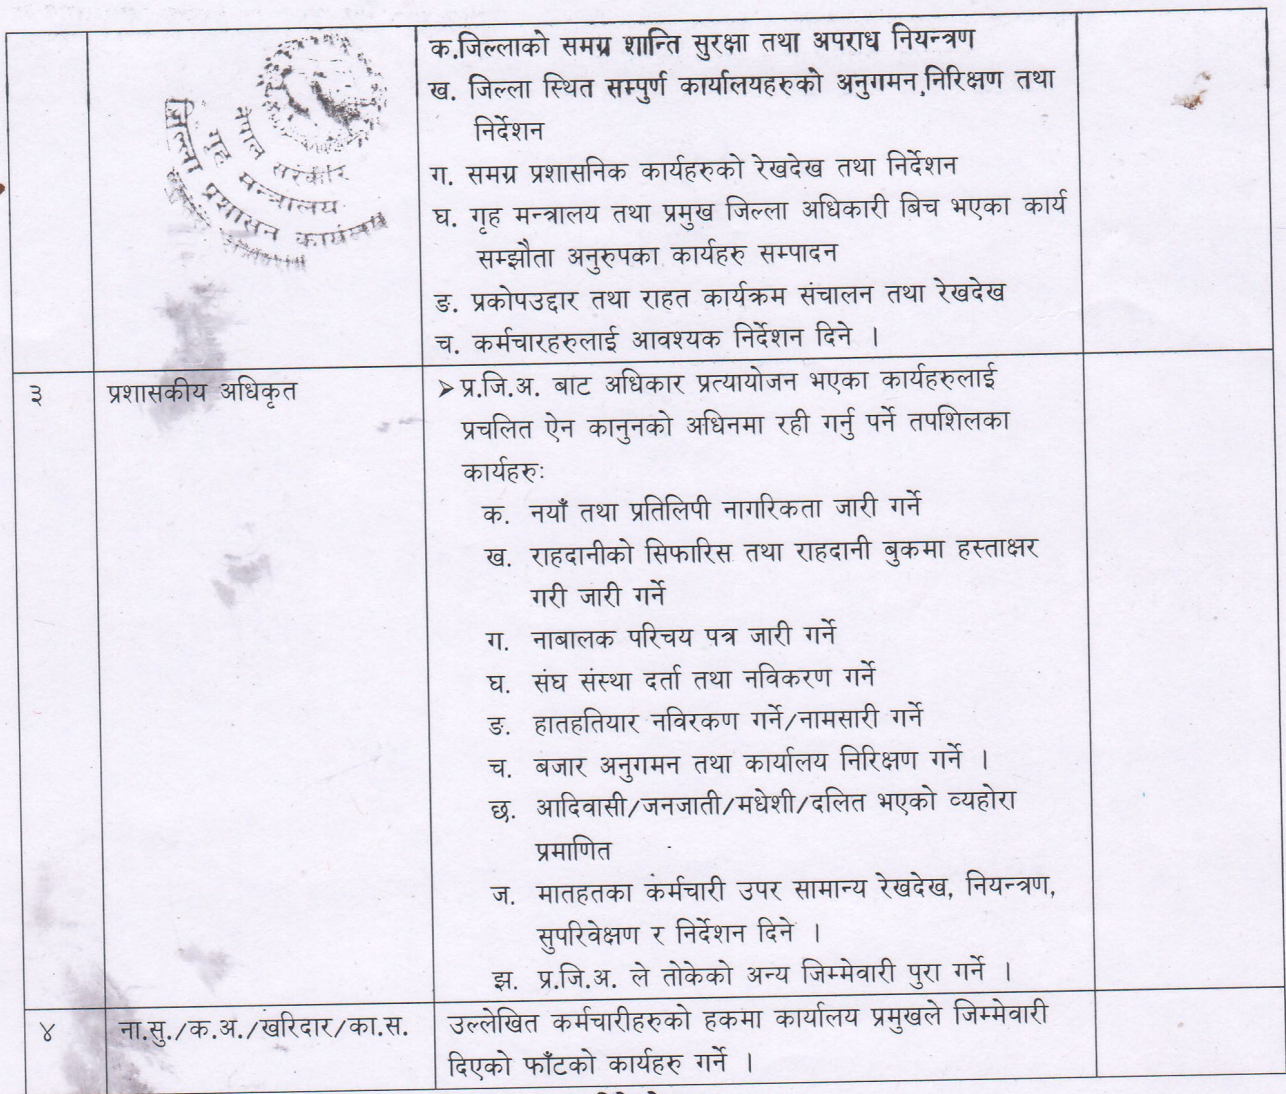 क.जिल्लाको समग्र शान्ति सुरक्षा तथा अपराध नियन्त्रण
ख. जिल्ला स्थित सम्पुर्ण कार्यालयहरुको अनुगमन,निरिक्षण तथा
निर्देशन
ग. समग्र प्रशासनिक कार्यहरुको रेखदेख तथा निर्देशन
घ. गृह मन्त्रालय तथा प्रमुख जिल्ला अधिकारी बिच भएका कार्य
सम्झौता अनुरुपका कार्यहरु सम्पादन
ङ. प्रकोपउद्दार तथा राहत कार्यक्रम संचालन तथा रेखदेख
च. कर्मचारहरुलाई आवश्यक निर्देशन दिने ।
नेपाल सरकार
गृह मन्त्रालय
जिल्ला प्रशासन कार्यालय
३ प्रशासकीय अधिकृत ➢ प्र.जि.अ. बाट अधिकार प्रत्यायोजन भएका कार्यहरुलाई
प्रचलित ऐन कानुनको अधिनमा रही गर्नु पर्ने तपशिलका
कार्यहरुः
क. नयाँ तथा प्रतिलिपी नागरिकता जारी गर्ने
ख. राहदानीको सिफारिस तथा राहदानी बुकमा हस्ताक्षर
गरी जारी गर्ने
ग. नाबालक परिचय पत्र जारी गर्ने
घ. संघ संस्था दर्ता तथा नविकरण गर्ने
ङ. हातहतियार नविरकण गर्ने/नामसारी गर्ने
च. बजार अनुगमन तथा कार्यालय निरिक्षण गर्ने ।
छ. आदिवासी/जनजाती/मधेशी/दलित भएको व्यहोरा
प्रमाणित
ज. मातहतका कर्मचारी उपर सामान्य रेखदेख, नियन्त्रण,
सुपरिवेक्षण र निर्देशन दिने ।
झ. प्र.जि.अ. ले तोकेको अन्य जिम्मेवारी पुरा गर्ने ।
४ ना.सु./क.अ./खरिदार/का.स. उल्लेखित कर्मचारीहरुको हकमा कार्यालय प्रमुखले जिम्मेवारी
दिएको फाँटको कार्यहरु गर्ने ।